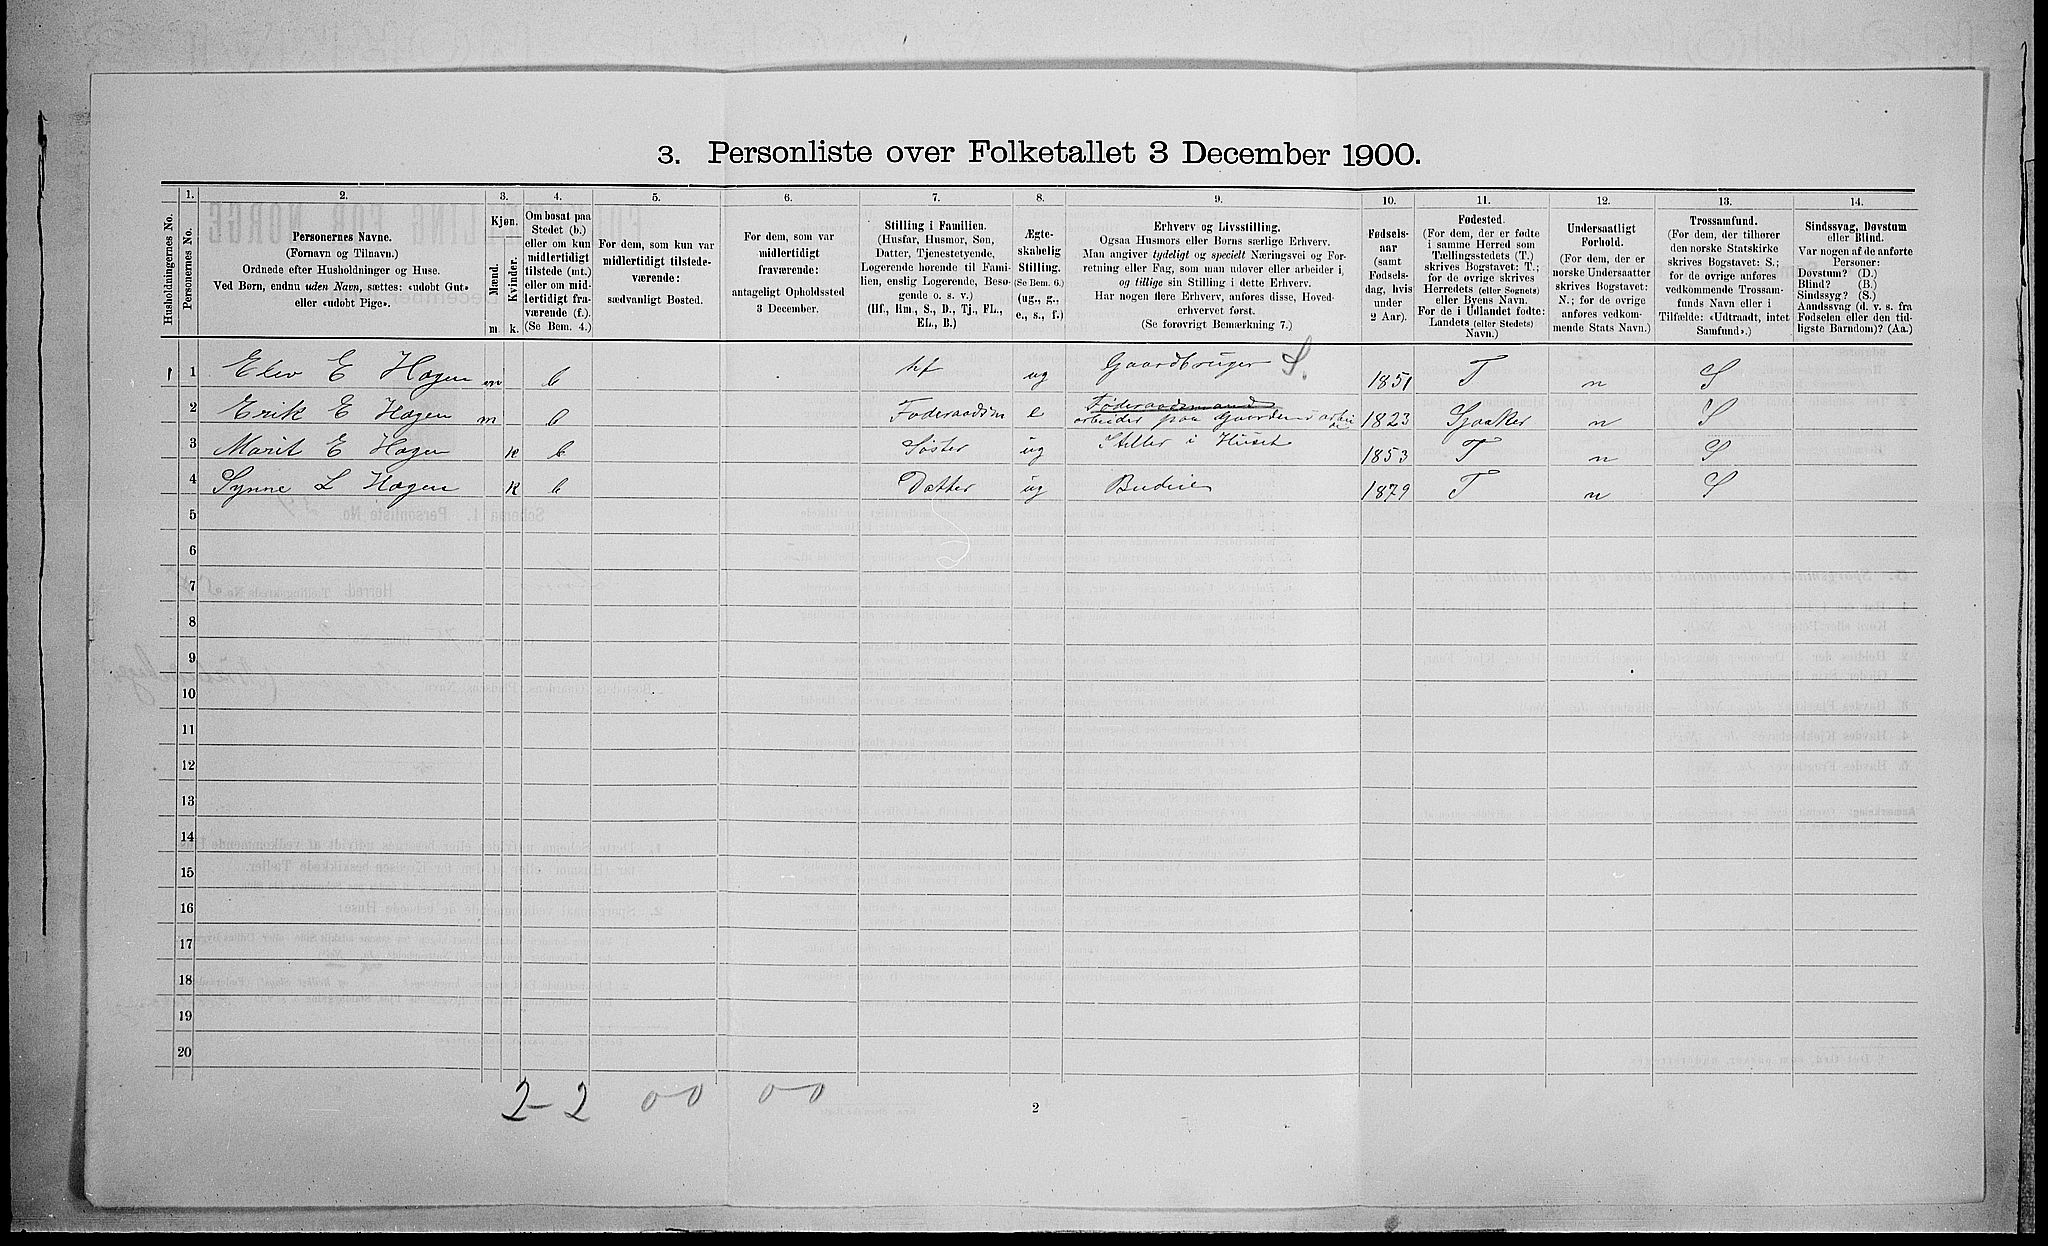 3. Personliste over Folketallet 3 December 1900.
Husholdningernes No.
1. Personernes No.
2. Personernes Navne. (Fornavn og Tilnavn.) Ordnede efter Husholdninger og Huse. Ved Børn, endnu uden Navn, sættes: «udøbt Gut» eller «udøbt Pige».
3. Kjøn. Mænd. m. Kvinder. k.
4. Om bosat paa Stedet (b.) eller om kun midlertidigt tilstede (mt.) eller om midlertidigt fraværende (f.). (Se Bem. 4.)
5. For dem, som kun var midlertidigt tilstedeværende: sædvanligt Bosted.
6. For dem, som var midlertidigt fraværende: antageligt Opholdssted 3 December.
7. Stilling i Familien. (Husfar, Husmor, Søn, Datter, Tjenestetyende, Logerende hørende til Familien, enslig Logerende, Besøgende o. s. v.) (Hf., Hm., S., D., Tj., FL., EL., B.)
8. Ægteskabelig Stilling. (Se Bem. 6.) (ug., g., e., s., f.)
9. Erhverv og Livsstilling. Ogsaa Husmors eller Børns særlige Erhverv. Man angiver tydeligt og specielt Næringsvei og Forretning eller Fag, som man udøver eller arbeider i, og tillige sin Stilling i dette Erhverv. Har nogen flere Erhverv, anføres disse, Hovederhvervet først. (Se forøvrigt Bemærkning 7.)
10. Fødselsaar (samt Fødselsdag, hvis under 2 Aar).
11. Fødested. (For dem, der er fødte i samme Herred som Tællingsstedets (T.) skrives Bogstavet: T.; for de øvrige skrives Herredets (eller Sognets) eller Byens Navn. For de i Udlandet fødte: Landets (eller Stedets) Navn.)
12. Undersaatligt Forhold. (For dem, der er norske Undersaatter skrives Bogstavet: N.; for de øvrige anføres vedkommende Stats Navn.)
13. Trossamfund. (For dem, der tilhører den norske Statskirke skrives Bogstavet: S.; for de øvrige anføres vedkommende Trossamfunds Navn eller i Tilfælde: «Udtraadt, intet Samfund».)
14. Sindssvag, Døvstum eller Blind. Var nogen af de anførte Personer: Døvstum? (D.) Blind? (B.) Sindssyg? (S.) Aandssvag (d. v. s. fra Fødselen eller den tidligste Barndom)? (Aa.)
1 1 Elev E Hagen m b hf ug Gaardbruger S. 1851 T n S
2 Erik E Hagen m b Foderaadsm e Føderaadsmand arbeider paa Gaarden 1823 n S
3 Marit E Hagen k b Søster ug Steller i Huset 1853 T n S
4 Synne L Hagen k b Datter ug Budeie 1879 T n S
5
6
7
8
9
10
11
12
13
14
15
16
17
18
19
20
2-2 0-0 0-0
2